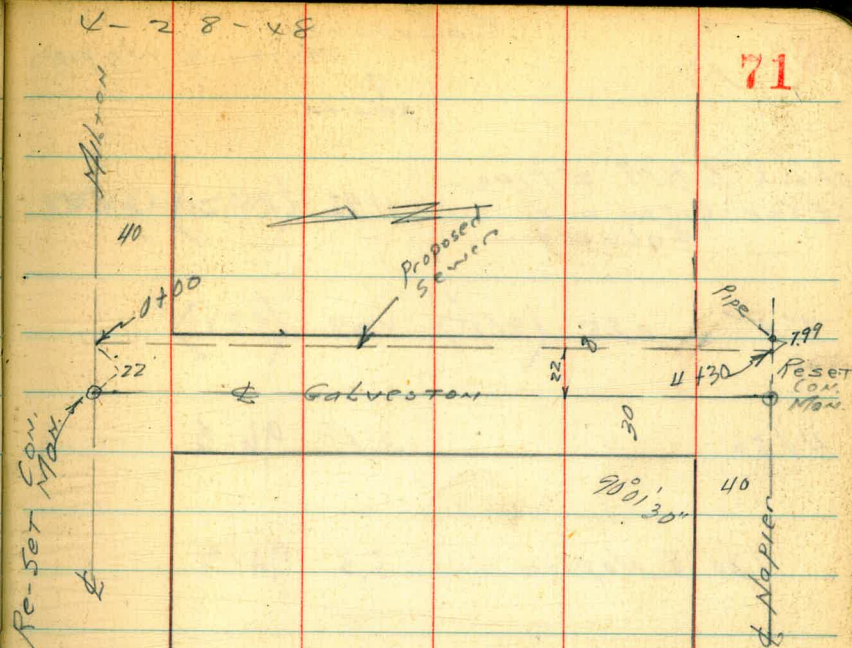 4-28-48
71
Milton
40
Proposed
Sewer
0+00
Pipe
7.99
8
22
22
4+30
Reset
Con.
Mon.
℄ Galveston
30
Re-Set Con.
Mon.
90°01'
30"
40
℄
℄ Napier